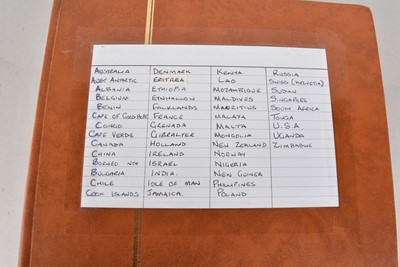 AUSTRALIA DENMARK KENYA RUSSIA
AUST ANTARTIC ERITREA LAO SWISS (HELVETIA)
ALBANIA ETHIOPIA MOZAMBIQUE SUDAN
BELGIUM ETNHALLON MALDIVES SINGAPORE
BENIN FALKLANDS MAURITIUS SOUTH AFRICA
CAPE OF GOOD HOPE FRANCE MALAYA TONGA
CONGO GRENADA MALITA U.S.A.
CAPE VERDE GIBRALTER MONGOLIA UGANDA
CANADA HOLLAND NEW ZEALAND ZIMBABWE
CHINA IRELAND NORWAY
BORNEO NTH ISRAEL NIGERIA
BULGARIA INDIA. NEW GUINEA
CHILE ISLE OF MAN PHILLIPINES
COOK ISLANDS JAMAICA. POLAND